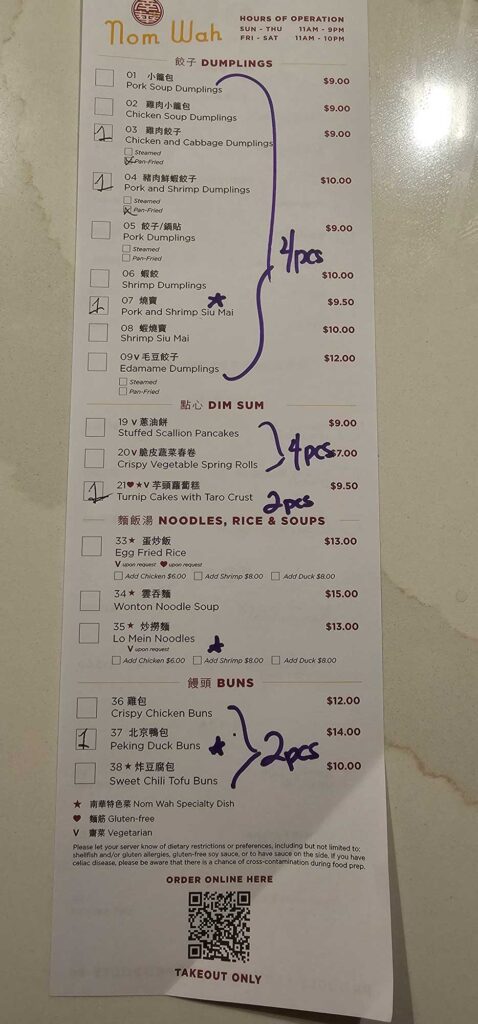 Nom Wah
HOURS OF OPERATION
SUN - THU 11AM - 9PM
FRI - SAT 11AM - 10PM
餃子 DUMPLINGS
01 小籠包
Pork Soup Dumplings $9.00
02 雞肉小籠包
Chicken Soup Dumplings $9.00
1 03 雞肉餃子
Chicken and Cabbage Dumplings $9.00
Steamed
Pan-Fried
1 04 豬肉鮮蝦餃子
Pork and Shrimp Dumplings $10.00
Steamed
Pan-Fried
05 餃子/鍋貼
Pork Dumplings $9.00
Steamed
Pan-Fried
4pcs
06 蝦餃
Shrimp Dumplings $10.00
1 07 燒賣 ★
Pork and Shrimp Siu Mai $9.50
08 蝦燒賣
Shrimp Siu Mai $10.00
09 V 毛豆餃子
Edamame Dumplings $12.00
Steamed
Pan-Fried
點心 DIM SUM
19 V 蔥油餅
Stuffed Scallion Pancakes $9.00
20 V 脆皮蔬菜春卷
Crispy Vegetable Spring Rolls 4pcs $7.00
1 21 ♥★V 芋頭蘿蔔糕
Turnip Cakes with Taro Crust 2pcs $9.50
麵飯湯 NOODLES, RICE & SOUPS
33★ 蛋炒飯
Egg Fried Rice $13.00
V upon request ♥ upon request
Add Chicken $6.00 Add Shrimp $8.00 Add Duck $8.00
34★ 雲吞麵
Wonton Noodle Soup $15.00
35★ 炒撈麵
Lo Mein Noodles $13.00
V upon request ★
Add Chicken $6.00 Add Shrimp $8.00 Add Duck $8.00
饅頭 BUNS
36 雞包
Crispy Chicken Buns $12.00
1 37 北京鴨包
Peking Duck Buns ★ 2pcs $14.00
38★ 炸豆腐包
Sweet Chili Tofu Buns $10.00
★ 南華特色菜 Nom Wah Specialty Dish
♥ 麵筋 Gluten-free
V 齋菜 Vegetarian
Please let your server know of dietary restrictions or preferences, including but not limited to:
shellfish and/or gluten allergies, gluten-free soy sauce, or to have sauce on the side. If you have
celiac disease, please be aware that there is a chance of cross-contamination during food prep.
ORDER ONLINE HERE
TAKEOUT ONLY